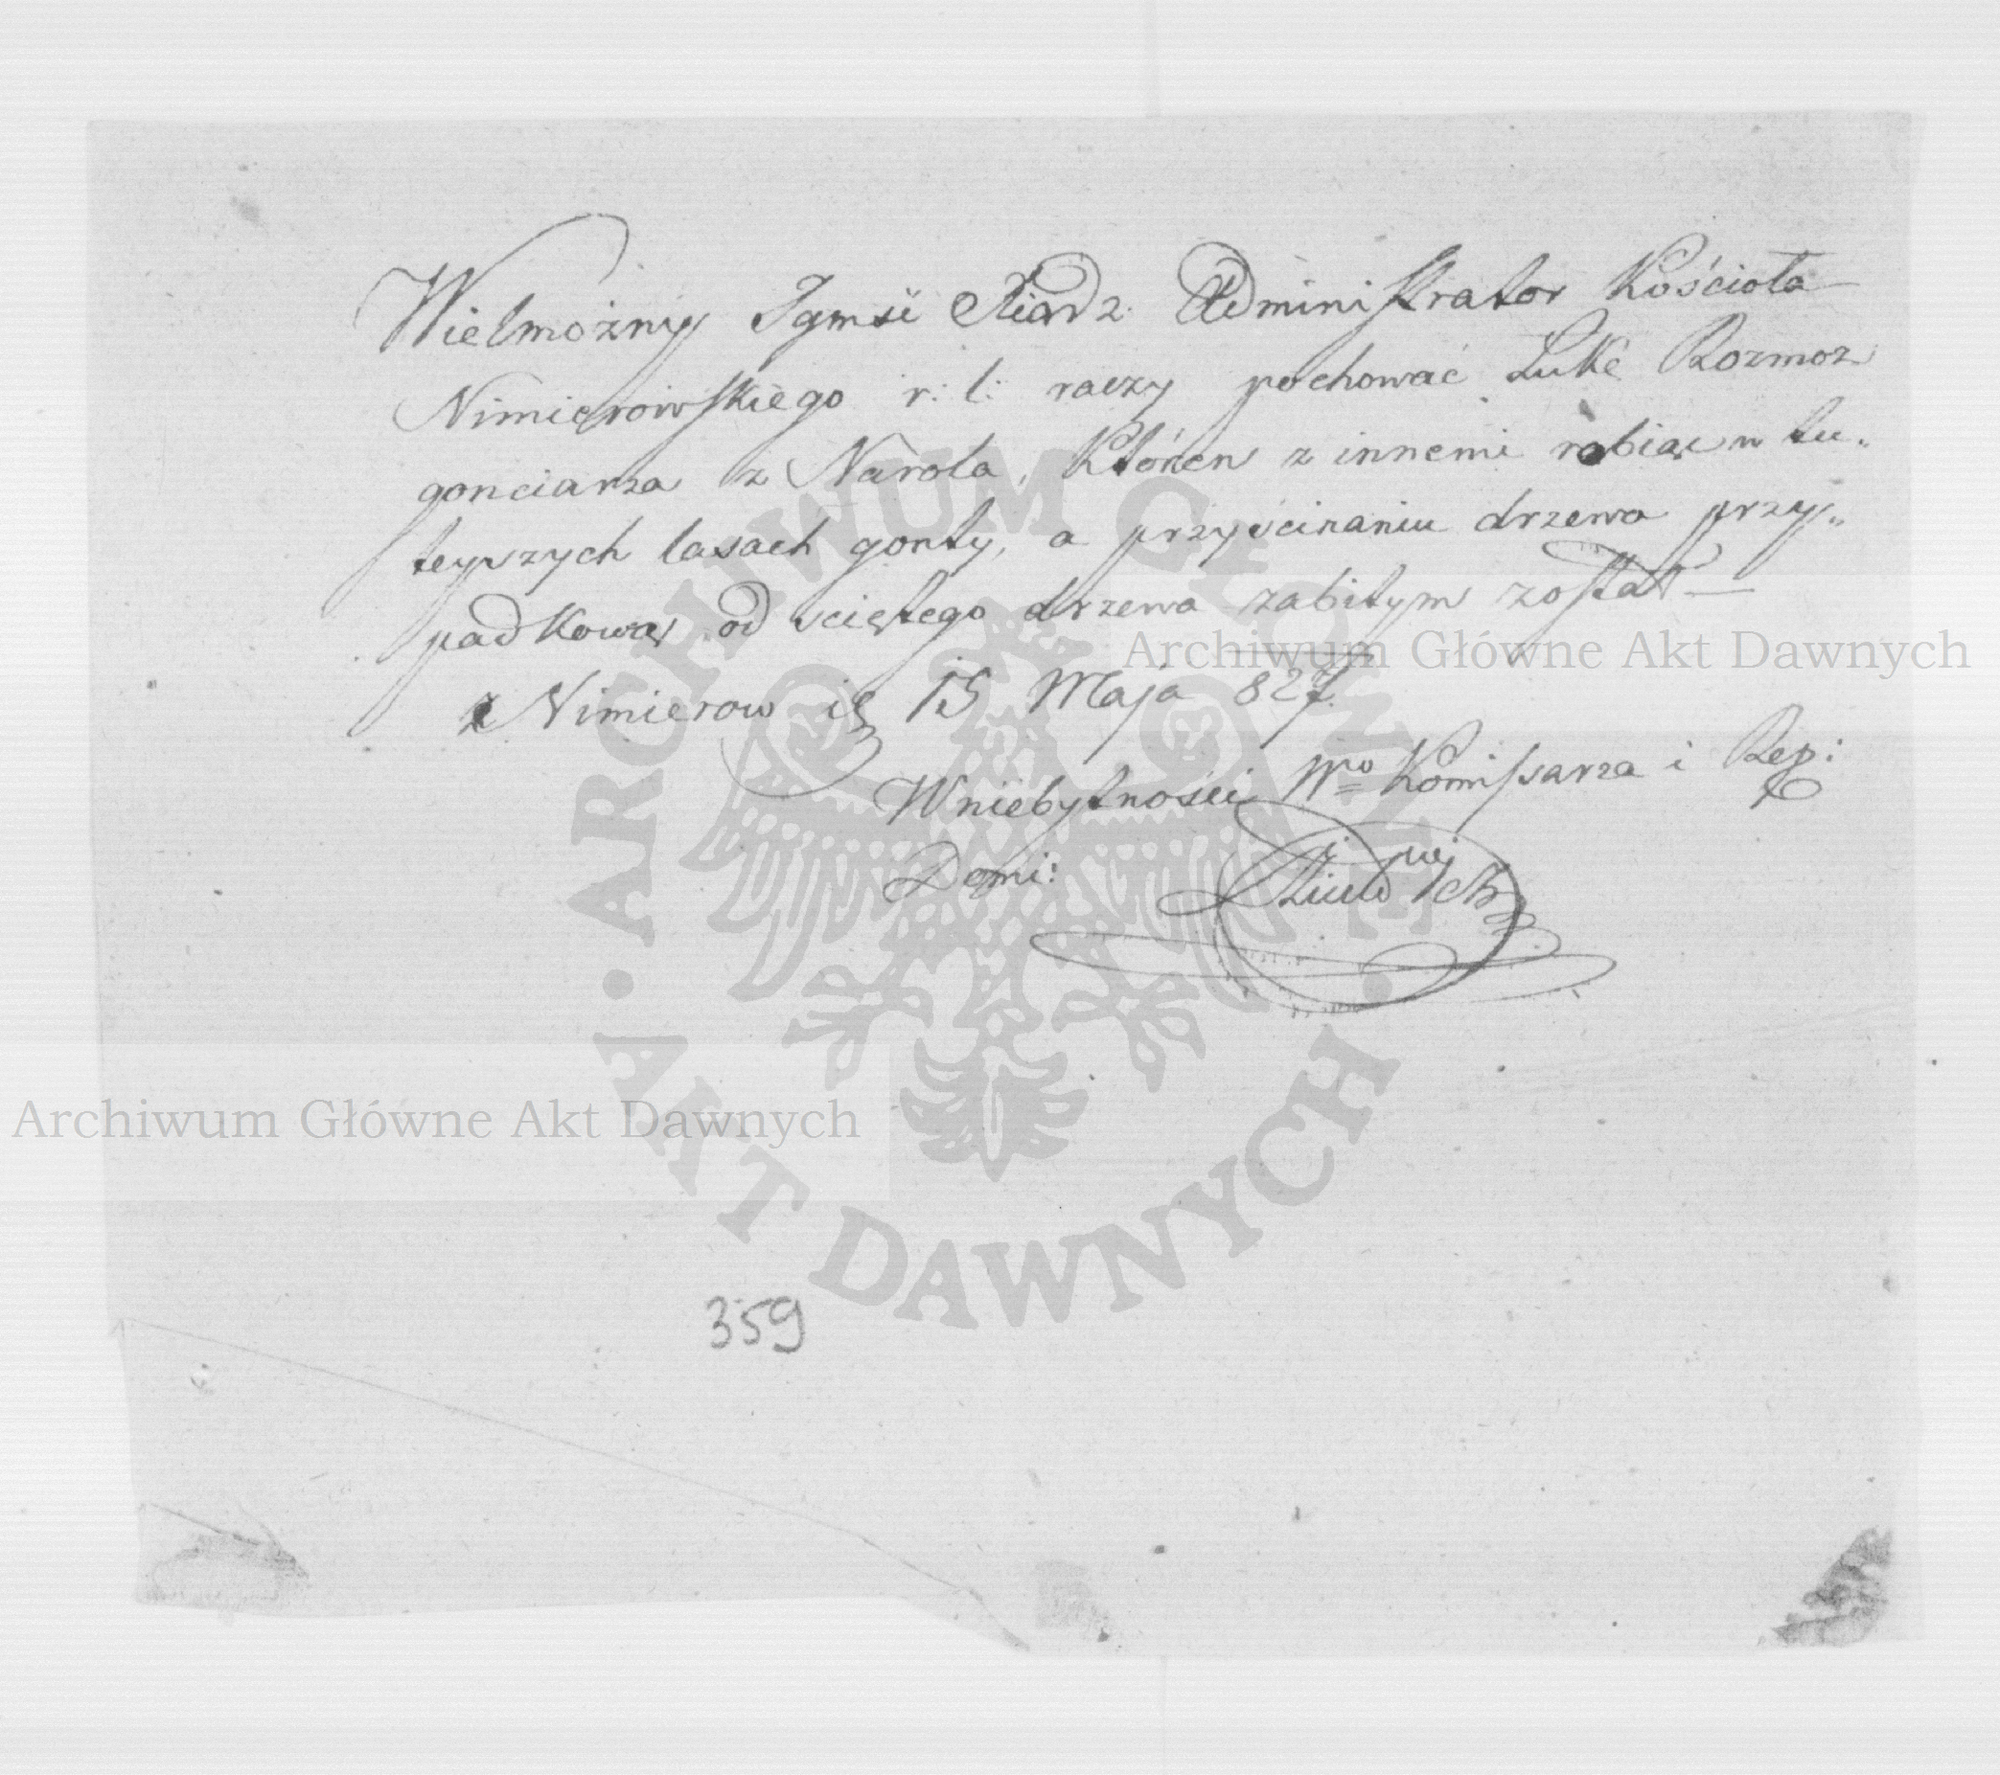 Wielmożny Jgmść Xiądz Administrator Kościoła
Nimierowskiego r: l: raczy pochować Lukę Rozmoz
gonciarza z Narola, któren z innemi robiąc w tu„
teyszych lasach gonty, a przyścinaniu drzewa przy„
padkową od sciętego drzewa zabitym został —
z Nimierow
15 Maja 827.
W niebytności Wo Komissarza i Rep:
Domi:
359
ARCHIWUM GŁÓWNE
AKT DAWNYCH
Archiwum Główne Akt Dawnych
Archiwum Główne Akt Dawnych